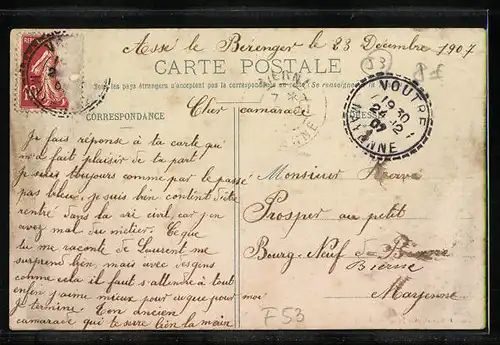 Assé le Bérenger le 23 Décembre 1907
CARTE POSTALE
Tous les pays étrangers n'acceptent pas la correspondance au recto (Se renseigner
CORRESPONDANCE
Cher camarade
VOUTRE
19 30
24 12
07
MAYENNE
Je fais réponse à ta carte qui
m'a fait plaisir de ta part
je suis toujours comme par le passé
pas bileux, je suis bien content d'être
rentré dans la vie civil, car j'en
avez mal du métier. Ce que
tu me raconte de Laurent me
surprend bien, mais avec des gens
comme cela il faut s'attendre à tout
enfin j'aime mieux pour lui que pour moi
je termine. Ton ancien
camarade qui te serre bien la main
Monsieur
Prosper au petit
Bourg-Neuf de
Bierné
Mayenne
F53
53